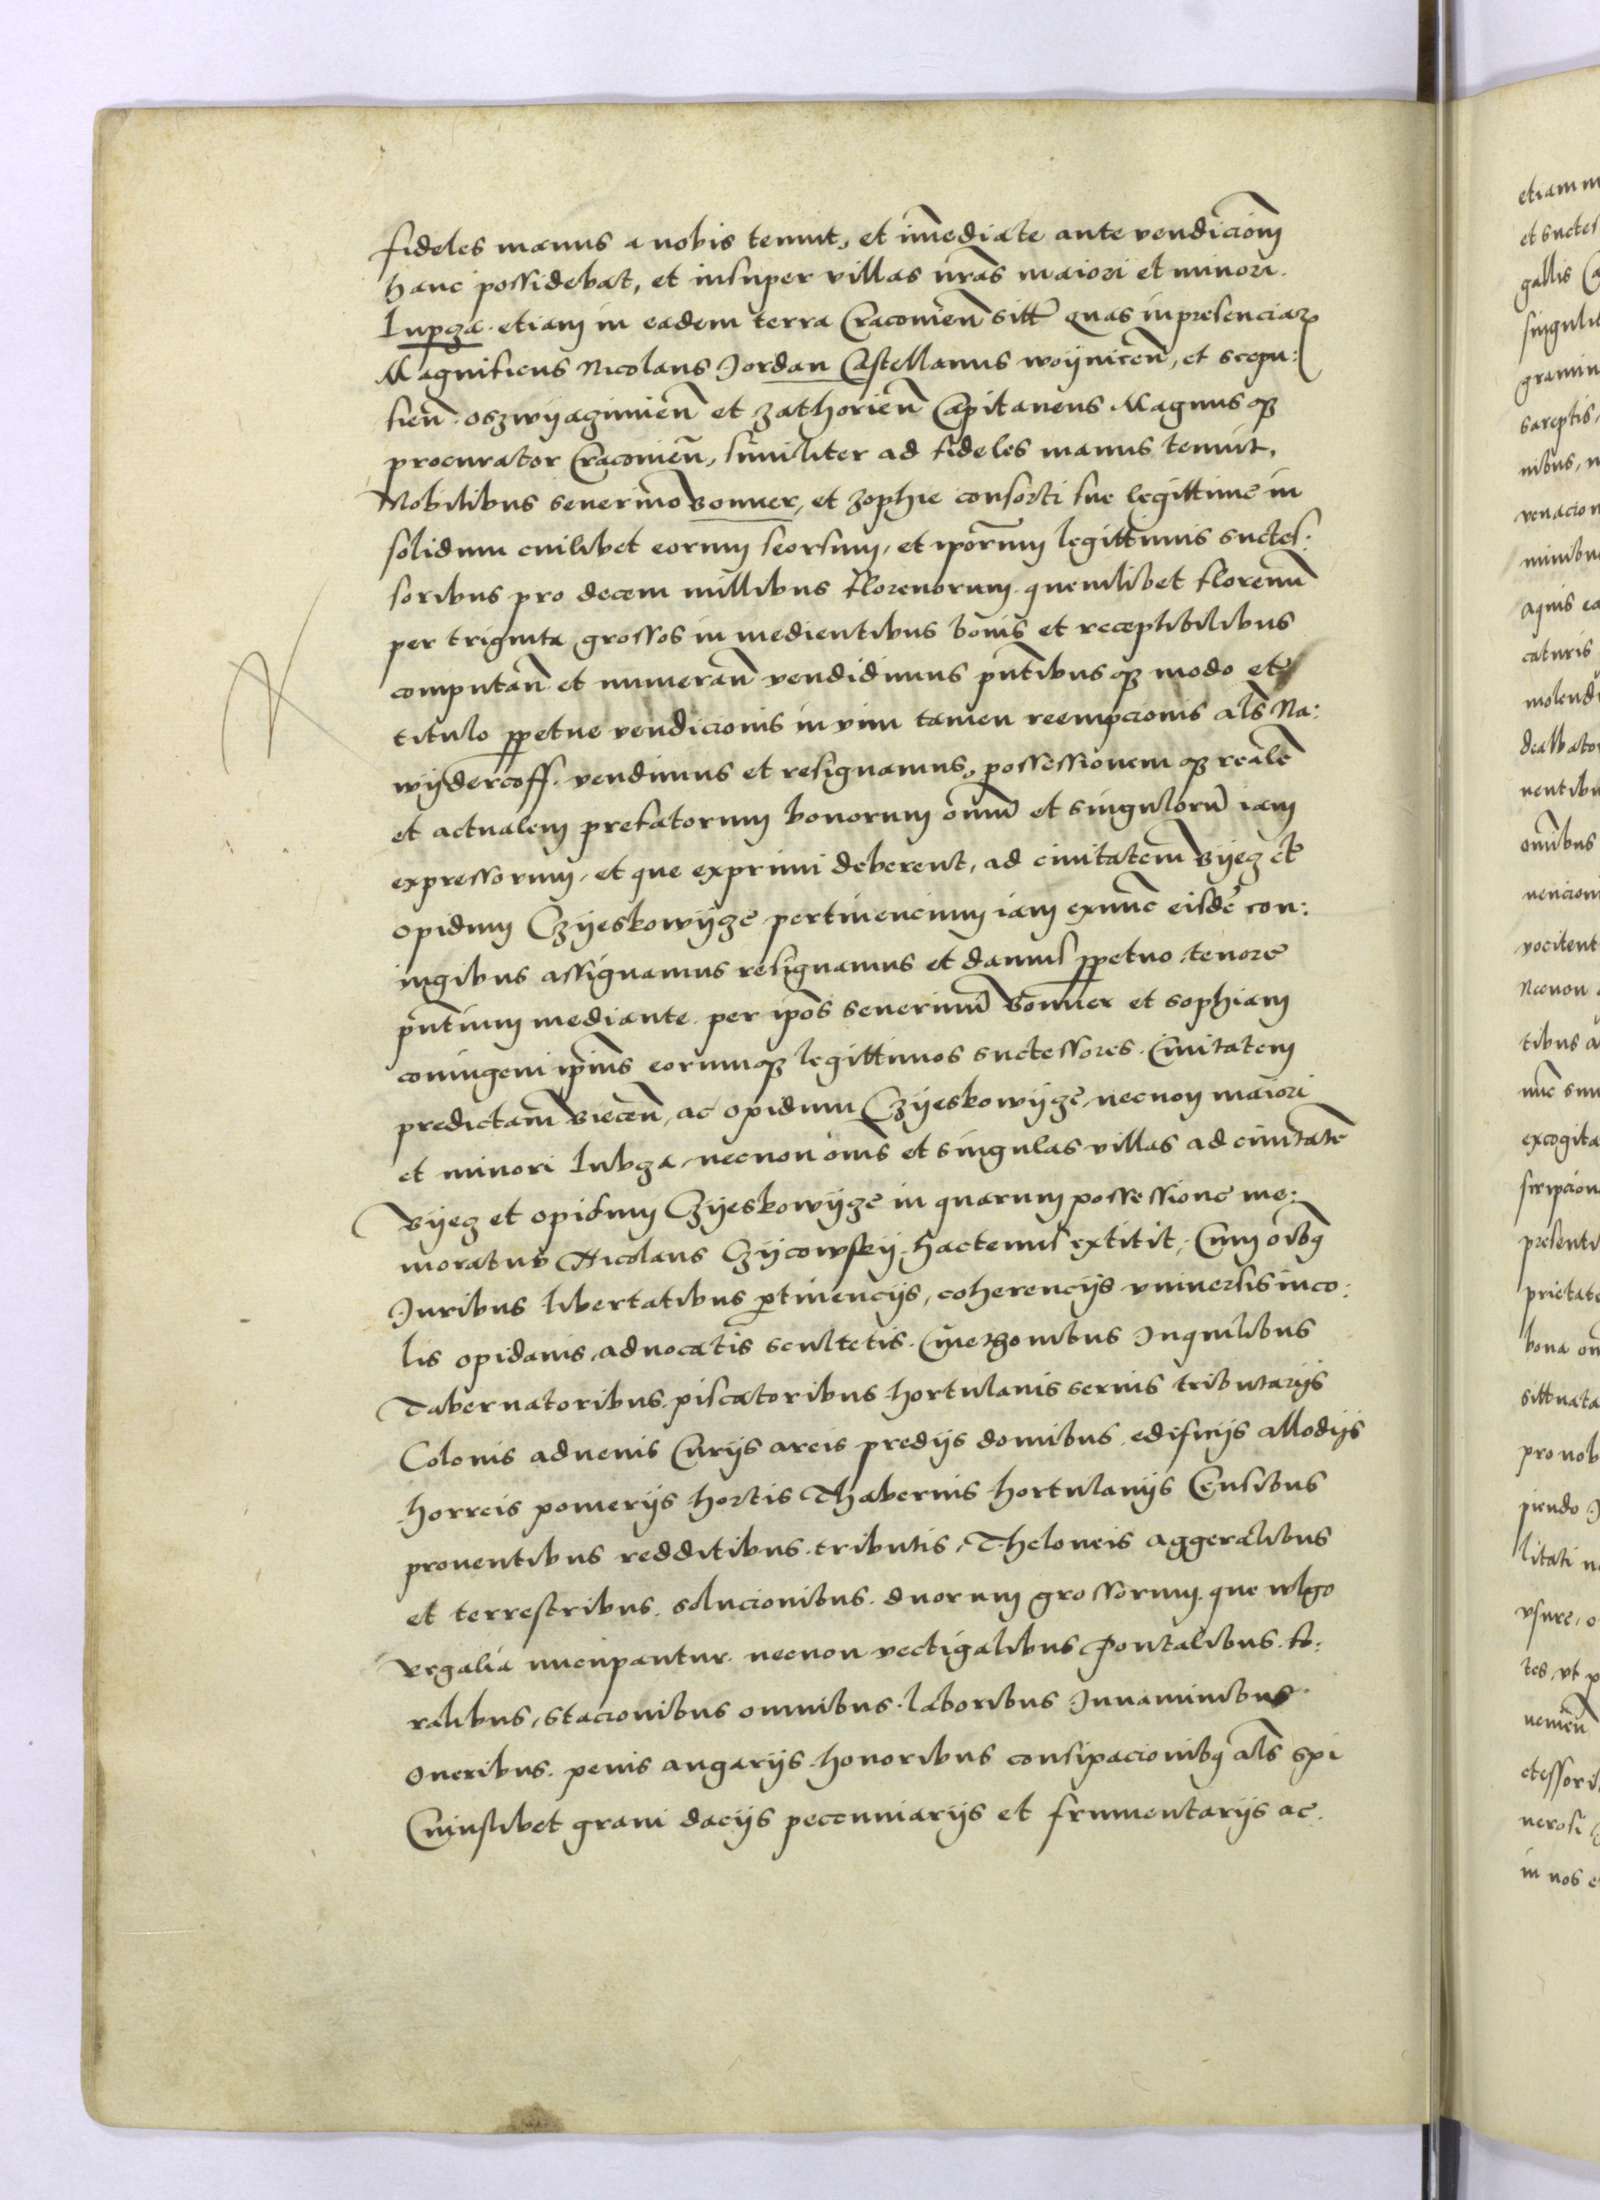 fideles manus a nobis tenuit, et im̄ediate ante vendicionē
hanc possidebat, et insuper villas nr̄as maiori et minori.
Lupza etiam in eadem terra Cracovien̄ sitt̄ quas inpresenciar
Magnificus Nicolaus Jordan Castellanus woyniceñ, et scepu:
sieñ. oszwyaczimieñ et zathorieñ Capitaneus Magnusqȝ
procurator Cracovieñ, similiter ad fideles manus tenuit,
Nobilibus severino Bonner, et zophie consorti sue legittime in
solidum cuilibet eorum seorsum, et ip̄orum legittimis succes:
soribus pro decem millibus florenorum quemlibet florenū
per triginta grossos in medientibus bonis et receptibilibus
computañ et numerañ vendidimus pn̄tibusqȝ modo et
titulo ꝑpetue vendicionis in vim tamen reempcionis al̄s Na:
wydercoff. vendimus et resignamus, possessionemqȝ realē
et actualem prefatorum bonorum om̄iū et singulorū iam
expressorum, et que exprimi deberent, ad civitatem Byecz et
opidum Czyeskowycze pertinencium iam exnunc eisdē con:
iugibus assignamus resignamus et damus ꝑpetuo tenore
pn̄tium mediante. per ip̄os severinū Bonner et sophiam
coniugem ip̄ius eorumqȝ legittimos successores. Civitatem
predictam Bieceñ, ac opidum Czyeskowycze, necnon maiori
et minori Lubza, necnon om̄s et singulas villas ad civitatē
Byecz et opidum Czyeskowycze in quarum possessione me:
moratus Nicolaus Czycowsky hactenus extitit, Cum oībꝫ
Juribus libertatibus ꝑtinencijs, coherencijs universis inco:
lis opidanis, advocatis scultetis. Cmethonibus Inquilibus
Tabernatoribus. piscatoribus hortulanis servis tributarijs
Colonis advenis Curijs areis predijs domibus. edificijs allodijs
horreis pomerijs hortis Thabernis hortulanijs Censibus
proventibus redditibus. tributis, Theloneis aggeralibus
et terrestribus. solucionibus. duorum grossorum. que wlgo
Regalia nuncupantur. necnon vectigalibus Pontalibus. fo:
ralibus, stacionibus omnibus. laboribus Juvaminibus
Oneribus. penis angarijs. honoribus consipacionibꝫ al̄s spi
Cuiuslibet grani dacijs peccuniarijs et frumentarijs ac